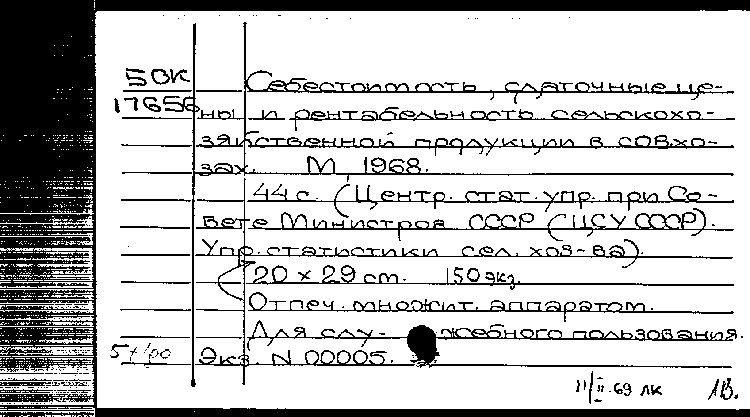 50К Себестоимость, сдаточные це-
17656 ны и рентабельность сельскохо-
зяйственной продукции в совхо-
зах. М, 1968.
44 с. (Центр. стат. упр. при Со-
вете Министров СССР (ЦСУ СССР).
Упр. статистики сел. хоз-ва).
20 x 29 cm. 150 экз.
Отпеч. множит. аппаратом.
Для слу- жебного пользования.
Экз. N 00005.
11/II.69 ЛК 1В.